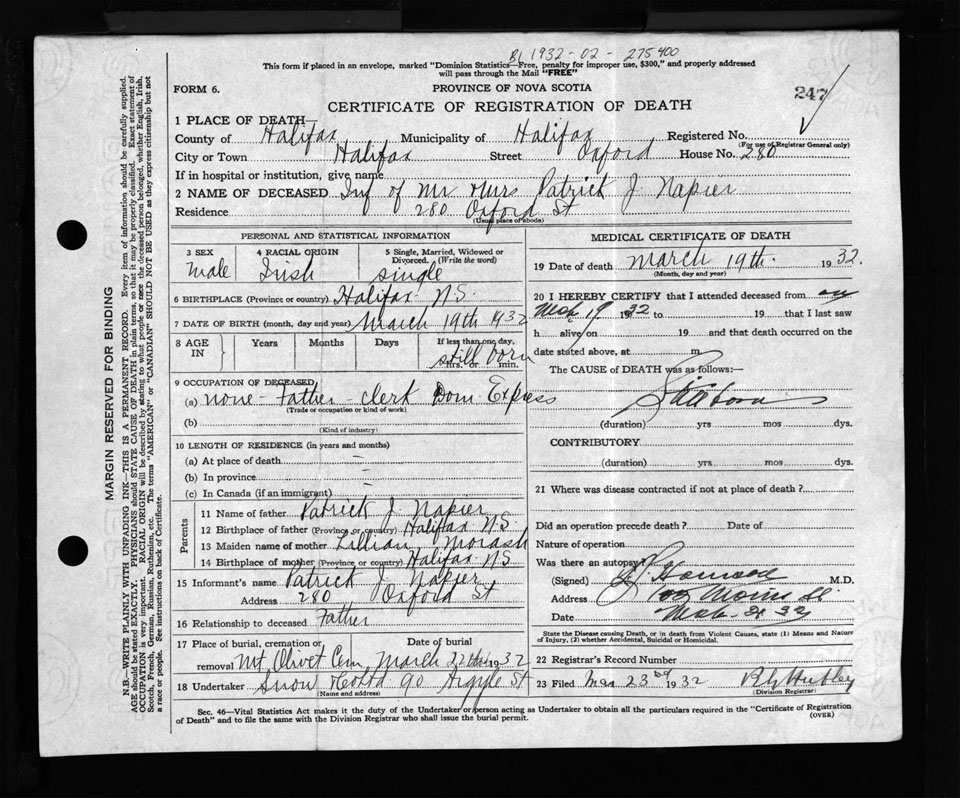 B1 1932-02-275400
This form if placed in an envelope, marked "Dominion Statistics—Free, penalty for improper use, $300," and properly addressed
will pass through the Mail "FREE"
FORM 6.
PROVINCE OF NOVA SCOTIA
247
CERTIFICATE OF REGISTRATION OF DEATH
1 PLACE OF DEATH
County of Halifax Municipality of Halifax Registered No.
(For use of Registrar General only)
City or Town Halifax Street Oxford House No. 280
If in hospital or institution, give name
2 NAME OF DECEASED Inf of Mr & Mrs Patrick J Napier
Residence 280 Oxford St
(Usual place of abode)
PERSONAL AND STATISTICAL INFORMATION
3 SEX Male
4 RACIAL ORIGIN Irish
5 Single, Married, Widowed or Divorced. (Write the word) single
6 BIRTHPLACE (Province or country) Halifax NS
7 DATE OF BIRTH (month, day and year) March 19th 1932
8 AGE IN Years Months Days If less than one day, hrs. or min. still born
9 OCCUPATION OF DECEASED
(a) none - Father - clerk Dom. Express
(Trade or occupation or kind of work)
(b)
(Kind of industry)
10 LENGTH OF RESIDENCE (in years and months)
(a) At place of death –
(b) In province –
(c) In Canada (if an immigrant) –
Parents
11 Name of father Patrick J Napier
12 Birthplace of father (Province or country) Halifax N.S.
13 Maiden name of mother Lillian Morash
14 Birthplace of mother (Province or country) Halifax NS
15 Informant's name Patrick J Napier
Address 280 Oxford St
16 Relationship to deceased Father
17 Place of burial, cremation or removal Mt Olivet Cem Date of burial March 22th 1932
18 Undertaker Snow & Co Ltd 90 Argyle St
(Name and address)
MEDICAL CERTIFICATE OF DEATH
19 Date of death March 19th 1932.
(Month, day and year)
20 I HEREBY CERTIFY that I attended deceased from on
Mch 19 1932 to 19 that I last saw
h alive on 19 and that death occurred on
date stated above, at m
The CAUSE OF DEATH was as follows:—
Stillborn
(duration) yrs mos dys.
CONTRIBUTORY
(duration) yrs mos dys.
21 Where was disease contracted if not at place of death?
Did an operation precede death? Date of
Nature of operation
Was there an autopsy?
(Signed) M.D.
Address Morris St.
Date Mch. 21 32
State the Disease causing Death, or in death from Violent Causes, state (1) Means and Nature
of Injury, (2) whether Accidental, Suicidal or Homicidal.
22 Registrar's Record Number
23 Filed Mar 23rd 1932
(Division Registrar)
Sec. 46—Vital Statistics Act makes it the duty of the Undertaker or person acting as Undertaker to obtain all the particulars required in the "Certificate of Registration
of Death" and to file the same with the Division Registrar who shall issue the burial permit.
(OVER)
MARGIN RESERVED FOR BINDING
N.B.—WRITE PLAINLY WITH UNFADING INK—THIS IS A PERMANENT RECORD. Every item of information should be carefully supplied.
AGE should be stated EXACTLY. PHYSICIANS should STATE CAUSE OF DEATH in plain terms, so that it may be properly classified. Exact statement of
OCCUPATION is very important. RACIAL ORIGIN will be described by stating to what people or race the deceased person belonged, whether English, Irish,
Scotch, French, German, Russian, Ruthenian, etc. The terms "AMERICAN" or "CANADIAN" SHOULD NOT BE USED as they express citizenship but not
a race or people. See instructions on back of Certificate.